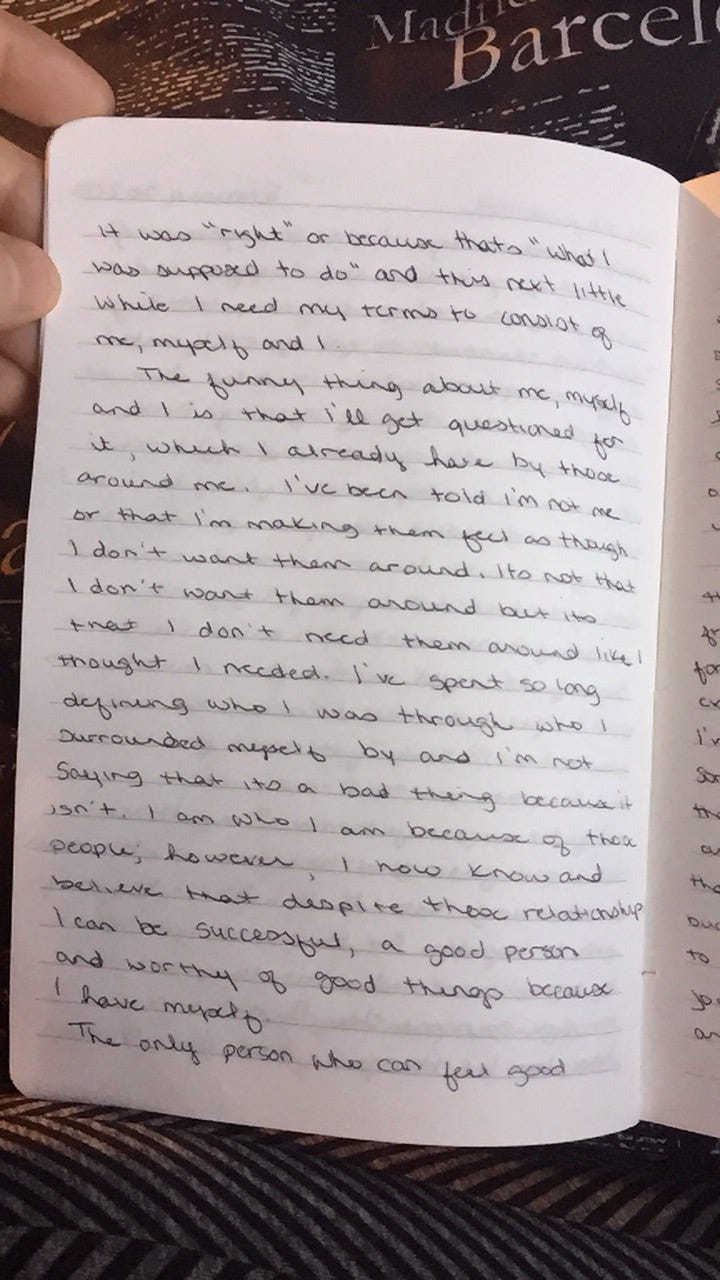 Madrid
Barcel
it was "right" or because thats "what I
was supposed to do" and this next little
while I need my terms to consist of
me, myself and I.
The funny thing about me, myself
and I is that i'll get questioned for
it, which I already have by those
around me. I've been told i'm not me
or that I'm making them feel as though
I don't want them around. Its not that
I don't want them around but its
that I don't need them around like I
thought I needed. I've spent so long
defining who I was through who I
surrounded myself by and i'm not
saying that its a bad thing because it
isn't. I am who I am because of those
people; however, I now know and
believe that despite those relationships
I can be successful, a good person
and worthy of good things because
I have myself.
The only person who can feel good